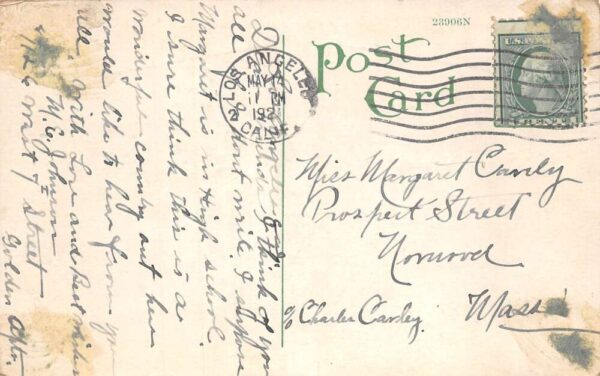 23906N
Post
Card
U.S. POSTAGE
CENT
LOS ANGELES
MAY
1 PM
192
CALIF.
Miss Margaret Carvly
Prospect Street
Norwood
Mass
c/o Charles Carvley.
think of you
all & dont write. I suppose
Margaret is in High school.
I sure think this is a
wonderful country out here
would like to hear from you
all. With Love and Best wishes
M. C. Johnson
West 7th Street
Golden Apts.